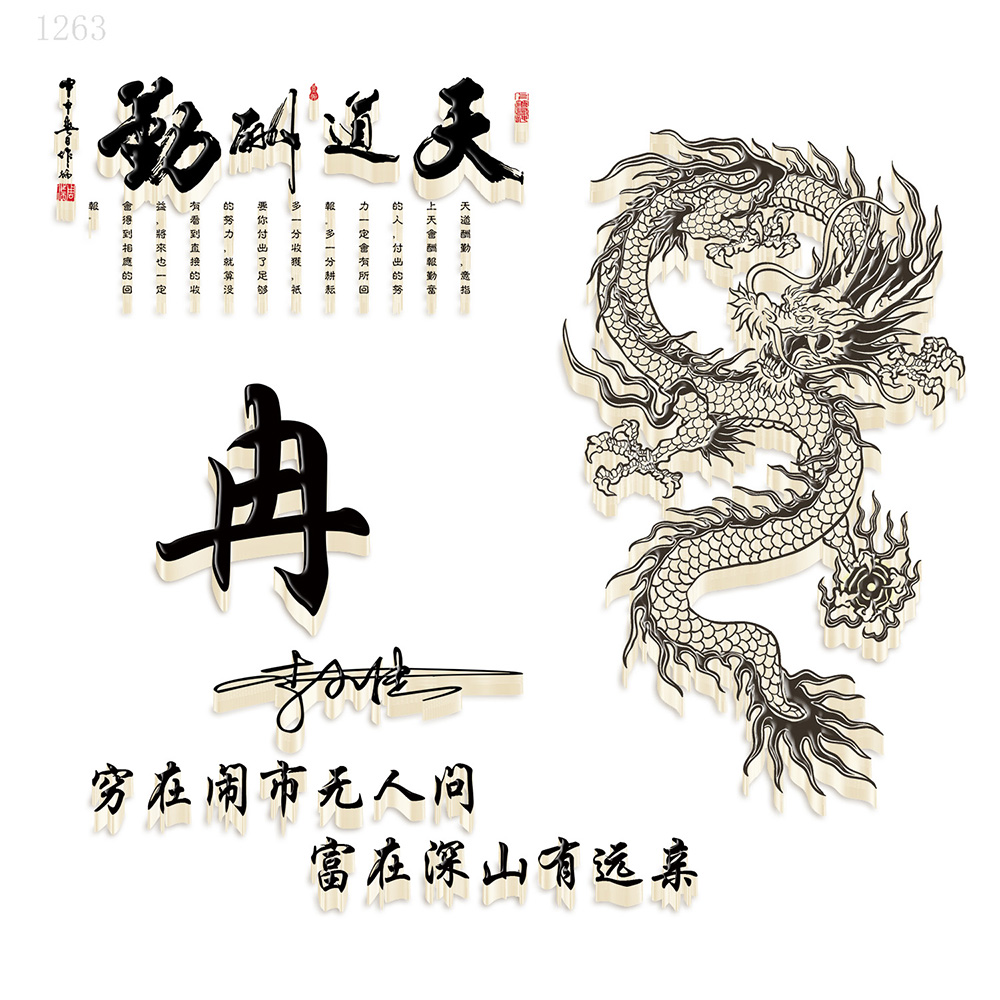 1263
天道酬勤
天道酬勤，意指
上天會酬報勤奮
的人，付出的努
力一定會有所回
報，多一分耕耘
多一分收獲，祇
要你付出了足够
的努力，就算没
有看到直接的收
益，將來也一定
會得到相應的回
報。
冉
穷在闹市无人问
富在深山有远亲